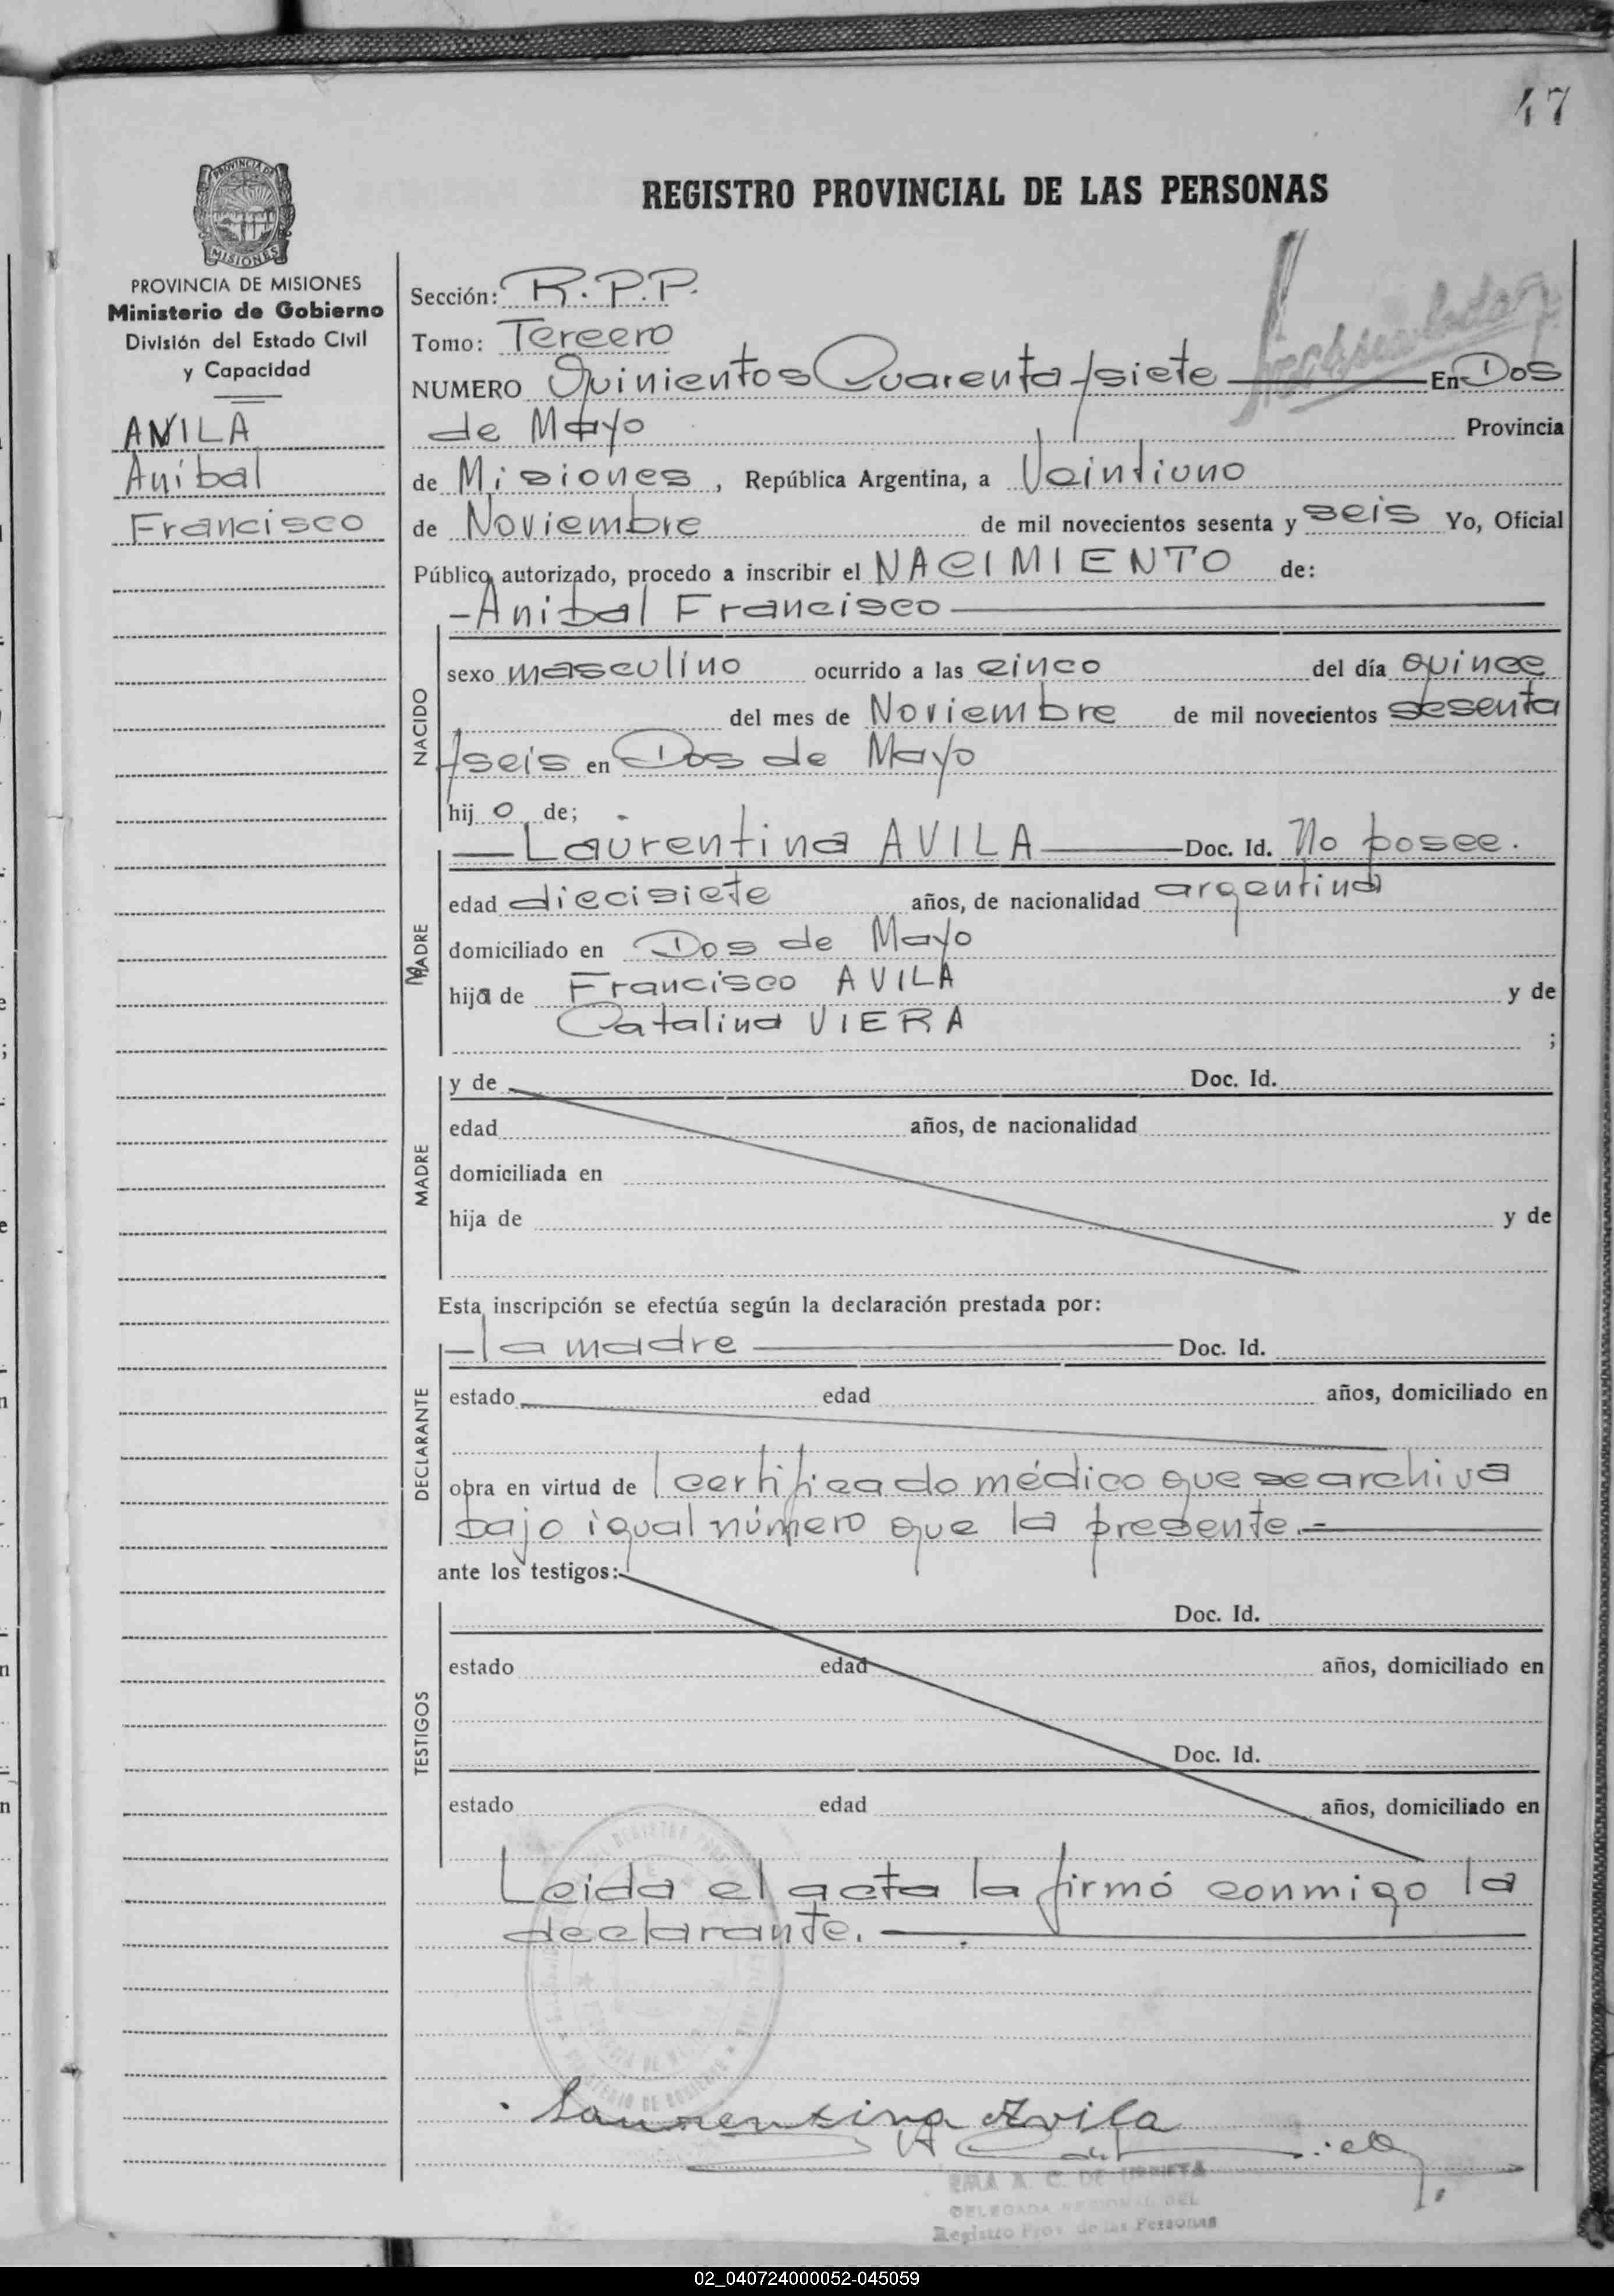 47
PROVINCIA DE
MISIONES
REGISTRO PROVINCIAL DE LAS PERSONAS
PROVINCIA DE MISIONES
Ministerio de Gobierno
División del Estado Civil
y Capacidad
AVILA
Anibal
Francisco
Sección: R.P.P.
Tomo: Tercero
NUMERO Quinientos Cuarenta y siete En Dos
de Mayo Provincia
de Misiones, República Argentina, a Veintiuno
de Noviembre de mil novecientos sesenta y seis Yo, Oficial
Público autorizado, procedo a inscribir el NACIMIENTO de:
- Anibal Francisco
NACIDO
sexo masculino ocurrido a las cinco del día quince
del mes de Noviembre de mil novecientos sesenta
y seis en Dos de Mayo
hij o de;
Laurentina AVILA Doc. Id. No posee.
MADRE
edad diecisiete años, de nacionalidad argentina
domiciliado en Dos de Mayo
hija de Francisco AVILA y de
Catalina VIERA ;
MADRE
y de Doc. Id.
edad años, de nacionalidad
domiciliada en
hija de y de
Esta inscripción se efectúa según la declaración prestada por:
- la madre Doc. Id.
DECLARANTE
estado edad años, domiciliado en
obra en virtud de l certificado médico que se archiva
bajo igual número que la presente.-
ante los testigos:
Doc. Id.
TESTIGOS
estado edad años, domiciliado en
Doc. Id.
estado edad años, domiciliado en
Leida el acta la firmó conmigo la
declarante.
Laurentina Avila
A. C. DE
DELEGADA REGIONAL DEL
Registro Prov. de las Personas
02_040724000052-045059